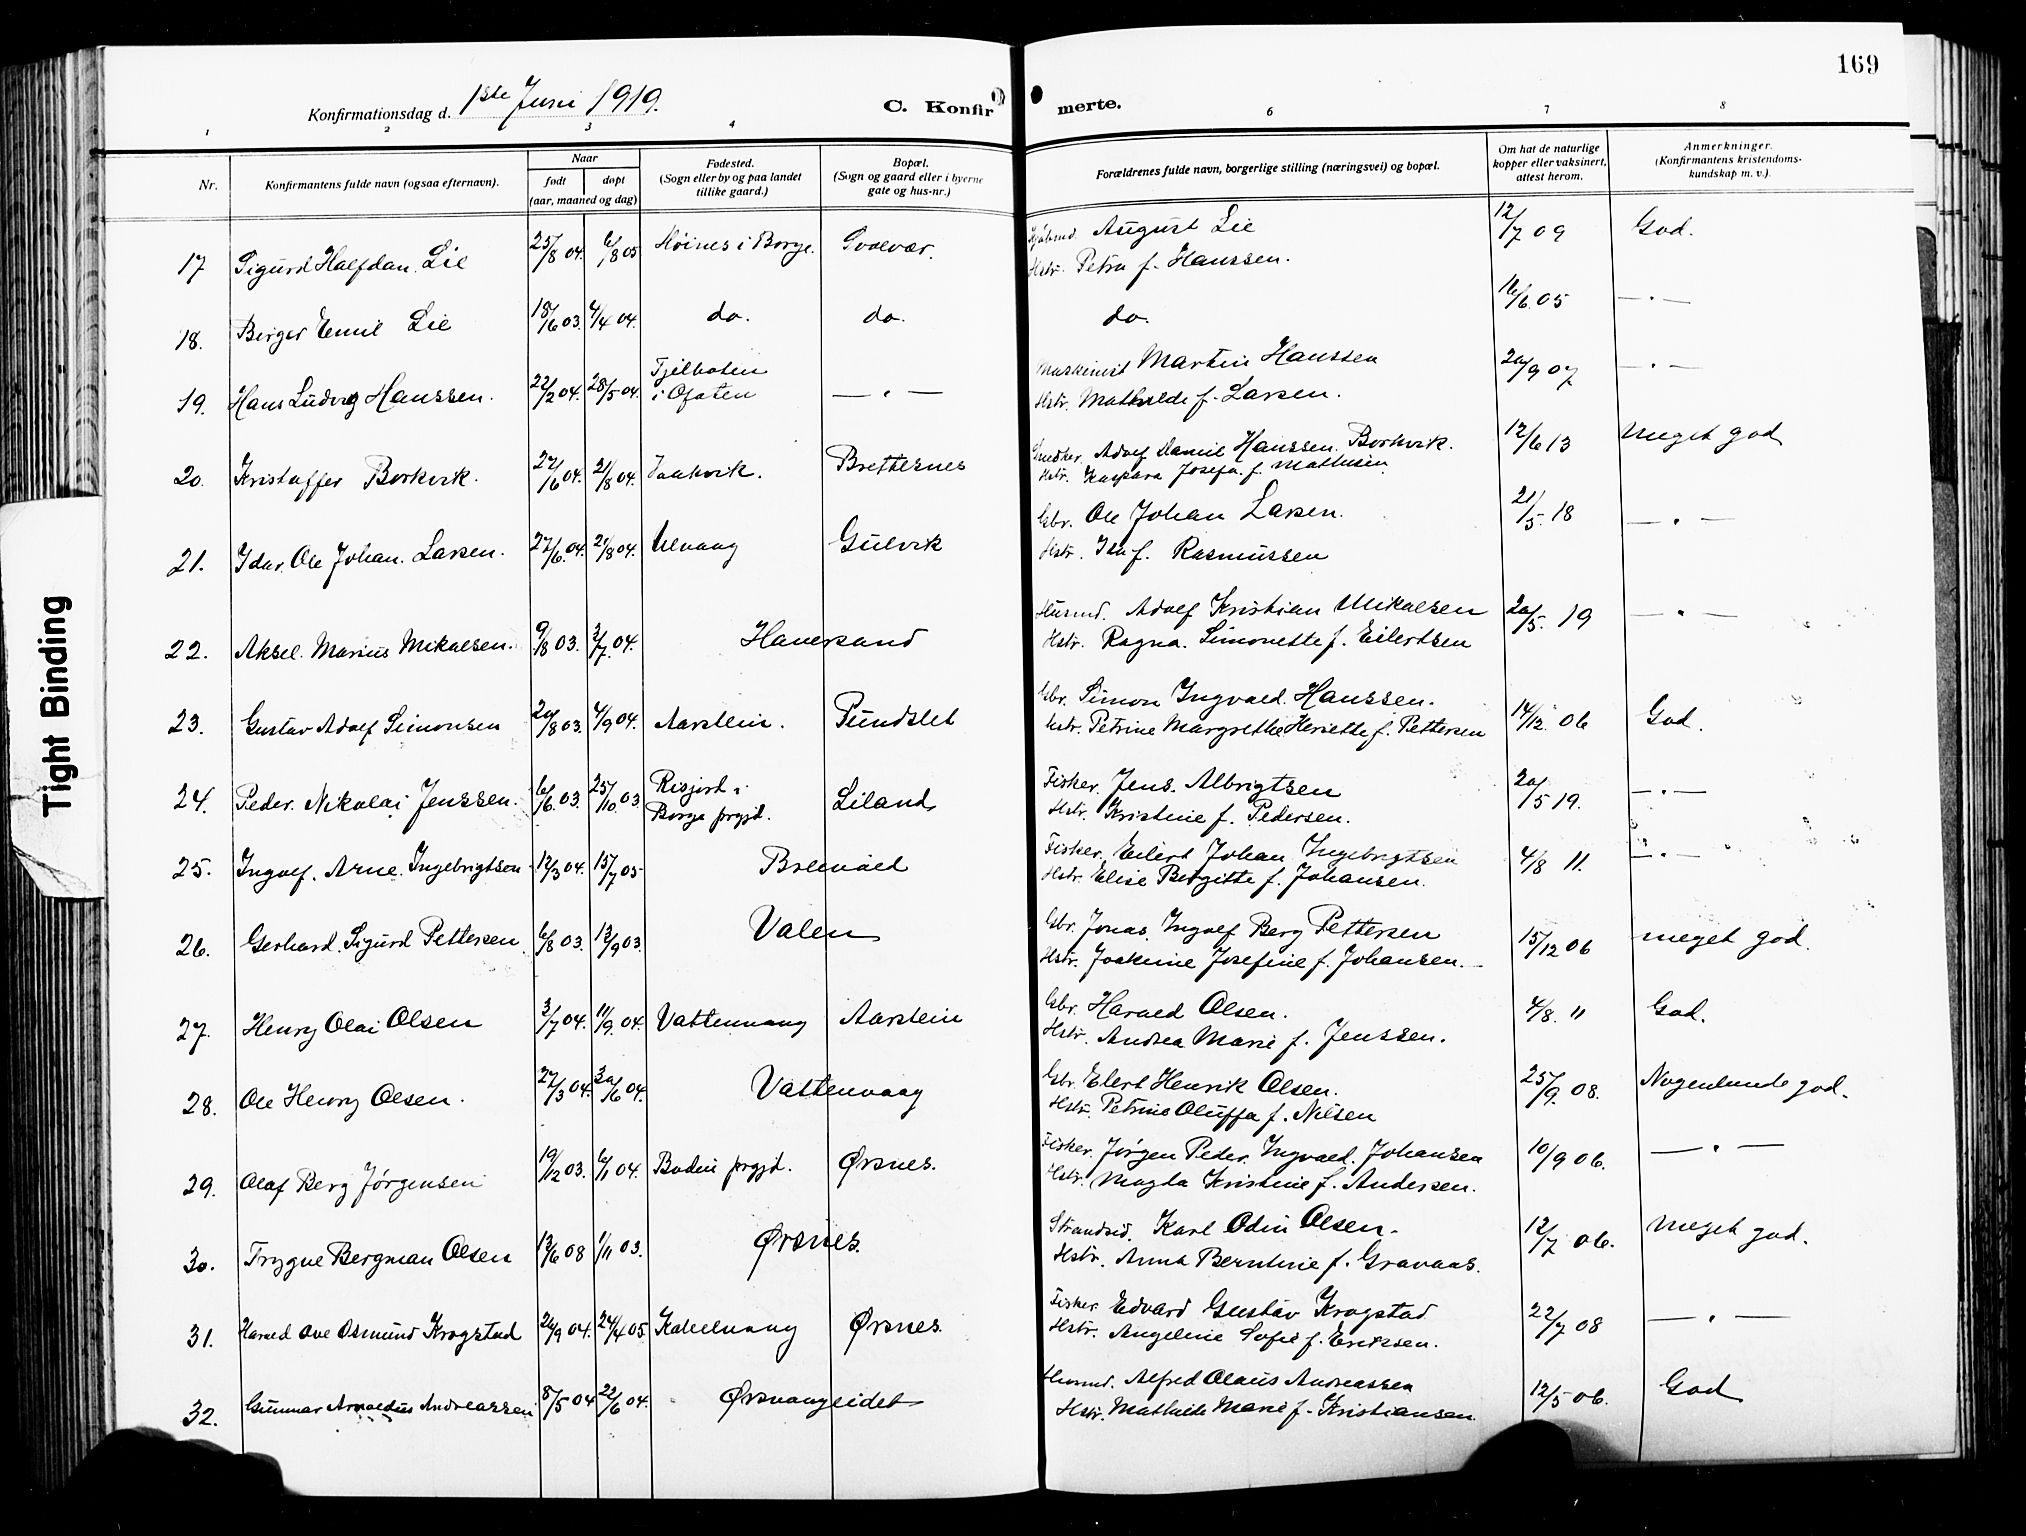 169
Konfirmationsdag d. 1ste Juni 1919.
C. Konfirmerte.
1 2 3 4 6 7 8
Nr.
Konfirmantens fulde navn (ogsaa efternavn).
Naar
født døpt
(aar, maaned og dag)
Fødested.
(Sogn eller by og paa landet
tillike gaard.)
Bopæl.
(Sogn og gaard eller i byerne
gate og hus-nr.)
Forældrenes fulde navn, borgerlige stilling (næringsvei) og bopæl.
Om hat de naturlige
kopper eller vaksinert,
attest herom.
Anmerkninger.
(Konfirmantens kristendoms-
kundskap m. v.).
17 Sigurd Halfdan Lie 25/8 04. 6/8 05 Høines i Borge. Svolvær. August Lie 12/7 09 God.
Hstr. Petra f. Hanssen.
18. Birger Emil Lie 18/6 03 4/4 04. do. do. do. 16/6 05 — " —
19. Hans Ludvig Hanssen. 22/2 04. 28/5 04. Tjelboten
i Ofoten — " — Maskinist Martin Hanssen 20/9 07 — " —
Hstr. Mathilde f. Larsen.
20. Kristoffer Borkvik. 27/6 04. 21/8 04. Vaakvik. Brettesnes Adolf Daniel Hanssen Borkvik. 12/6 13 Meget god
Hstr. Kaspara Josefa f. Mathisen
21. Idar Ole Johan Larsen. 27/6 04. 21/8 04. Ulvaag Gulvik Gbr. Ole Johan Larsen. 21/5 18 — " —
Hstr. Ida f. Rasmussen
22. Aksel Marius Mikalsen. 9/8 03. 3/7 04. Haversand Husmd. Adolf Kristian Mikalsen 20/5 19 — " —
Hstr. Ragna Simonette f. Eilertsen
23. Gustav Adolf Simonsen 20/8 03. 4/9 04. Aarstein. Pundslet Gbr. Simon Ingvald Hanssen. 14/12 06 God.
Hstr. Petrine Margrethe Heriette f. Pettersen
24. Peder Nikolai Jenssen. 6/6 03. 25/10 03 Risjord i
Borge prgjd. Liland Fisker Jens Albrigtsen 20/5 19. — " —
Hstr. Kristine f. Pedersen.
25. Ingolf Arne Ingebrigtsen 12/3 04. 15/7 05 Breivold Fisker Eilert Johan Ingebrigtsen 4/8 11. — " —
Hstr. Elise Bergitte f. Johansen.
26. Gerhard Sigurd Pettersen 6/8 03. 13/9 03. Valen Gbr. Jonas Ingolf Berg Pettersen 15/12 06 meget god.
Hstr. Joakime Josefine f. Johansen.
27. Henry Olai Olsen 3/7 04. 11/9 04. Vattenvaag Aarstein Gbr. Harald Olsen. 4/8 11 God.
Hstr. Andrea Marie f. Jenssen.
28. Ole Henry Olsen. 27/3 04. 30/6 04. Vattenvaag Gbr. Elert Henrik Olsen. 25/9 08. Nogenlunde god.
Hstr. Petrine Oluffa f. Nilsen
29. Olaf Berg Jørgensen 19/12 03. 6/1 04. Bodin prgjd. Ørsnes. Fisker Jørgen Peder Ingvald Johansen 10/9 06. — " —
Hstr. Magda Kristine f. Andersen.
30. Trygve Bergman Olsen 13/6 08 1/11 03. Ørsnes. Strandsid. Karl Odin Olsen. 12/7 06. Meget god.
Hstr. Anna Berntine f. Gravaas.
31. Harald Ove Osmund Krogstad 26/9 04. 24/4 05. Kabelvaag Ørsnes. Fisker Edvard Gustav Krogstad 22/7 08 — " —
Hstr. Angeline Sofie f. Eriksen.
32. Gunnar Arnoldus Andreassen 8/5 04 22/6 04. Ørsvaageidet Husmd. Alfred Olaus Andreassen 12/5 06. God
Hstr. Mathilde Marie f. Kristiansen.
Tight Binding